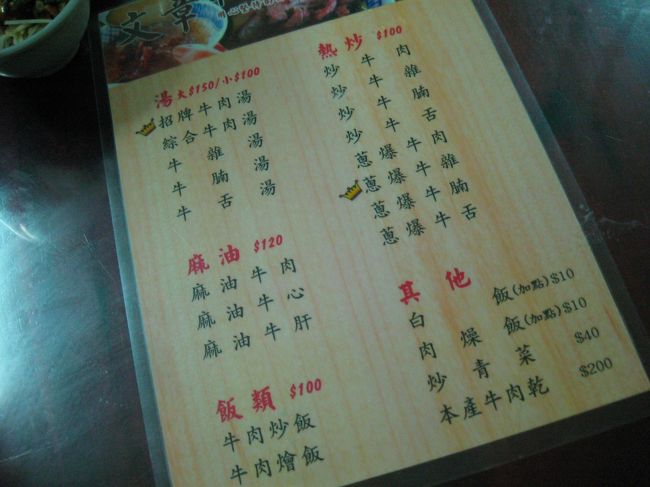 文章
湯 大$150/小$100
招牌牛肉湯
綜合牛肉湯
牛雜湯
牛腩湯
牛舌湯
麻油 $120
麻油牛肉
麻油牛心
麻油牛肝
飯類 $100
牛肉炒飯
牛肉燴飯
熱炒 $100
炒牛肉
炒牛雜
炒牛腩
炒牛舌
蔥爆牛肉
蔥爆牛雜
蔥爆牛腩
蔥爆牛舌
其他
白飯(加點)$10
肉燥飯(加點)$10
炒青菜 $40
本產牛肉乾 $200